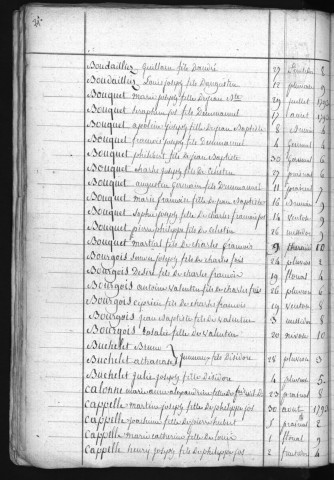 Boudaillier guillain fils D'andré 27
Boudaillier Louis joseph fils D'augustin 12 pluviose 9
Bouquet marie joseph fille De jean Bte 29 juillet 1793
Bouquet Seraphin jos fils D'emmanuel 17 aout 1793
Bouquet apoline joseph fille De jean Baptiste 8
Bouquet francois joseph fils D'emmanuel 4 4
Bouquet philibert fils De jean Baptiste 30 6
Bouquet charles joseph fils De celestin 27 6
Bouquet augustin Germain fils D'emmanuel 11 7
Bouquet marie francoise fille De jean Baptiste 16 Brumaire 9
Bouquet Sophie joseph fille De charles francois jos 14 ventose 9
Bouquet pierre philippe fils De celestin 26 messidor
Bouquet martial fils De charles francois 9 thermidor 10
Bourgois Louise joseph fille De charles fois 24 pluviose 2
Bourgois Desiré fils De charles francois 19 floreal 4
Bourgois antoine valentin fils De charles fois 26 pluviose 6
Bourgois cyprien fils De charles francois 19 ventose 8
Bourgois jean Baptiste fils De valentin 3 messidor 8
Bourgois Natalie fille De valentin 20 nivose 10
Buchelet Bruno
Buchelet athanase jumeaux fils D'isidore 28 pluviose 3
Buchelet julie joseph fille D'isidore 4 pluviose 5
Calonne marie 23 prairial 8
Cappelle martin joseph fils De philippe jos 30 aout 1793
Cappelle joachim fils De pierre hubert 5 prairial 2
Cappelle marie catherine fille De Louis 1 floreal 9
Cappelle henry joseph fils De philippe jos 2 4